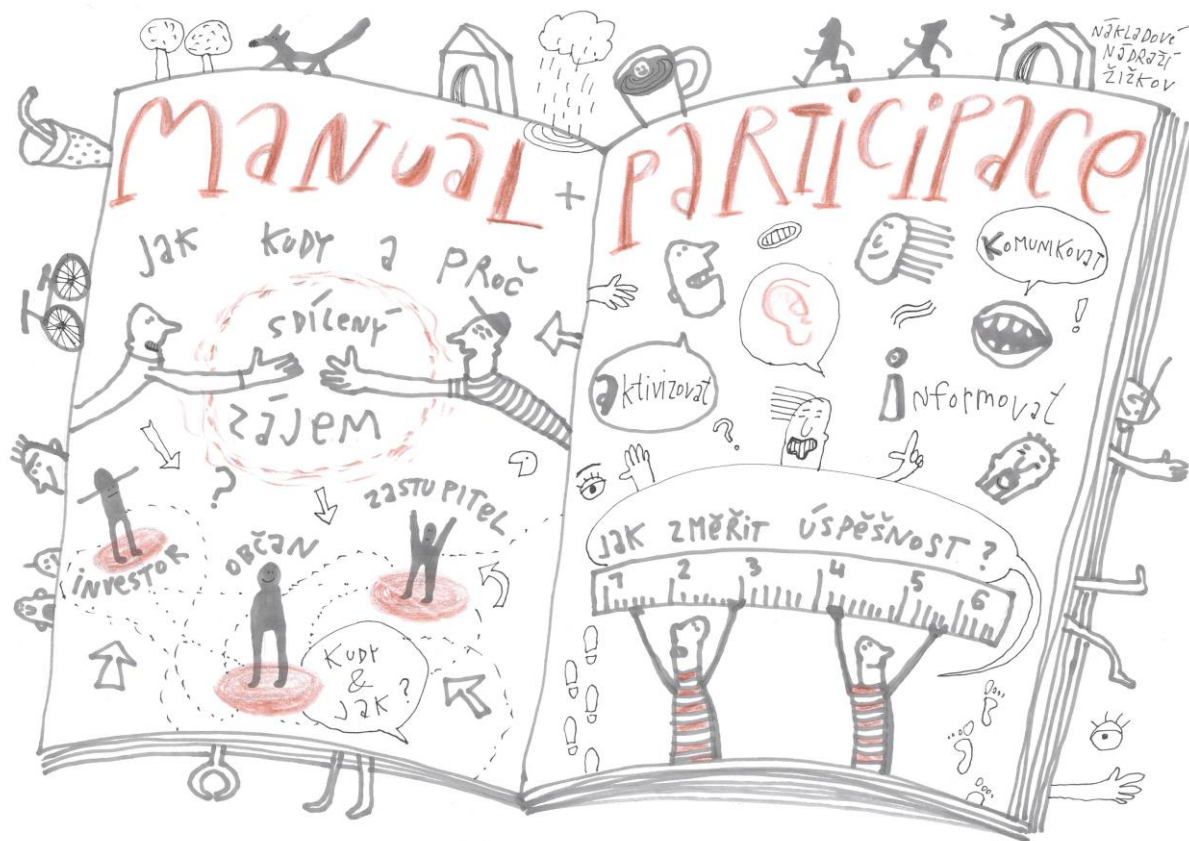 NÁKLADOVÉ
NÁDRAŽÍ
ŽIŽKOV
MANUÁL +
JAK KUDY A PROČ
SDÍLENÝ
ZÁJEM
?
INVESTOR
OBČAN
ZASTUPITEL
KUDY
&
JAK?
PARTICIPACE
KOMUNIKOVAT
!
aktivizovat
?
informovat
JAK ZMĚŘIT ÚSPĚŠNOST?
1 2 3 4 5 6